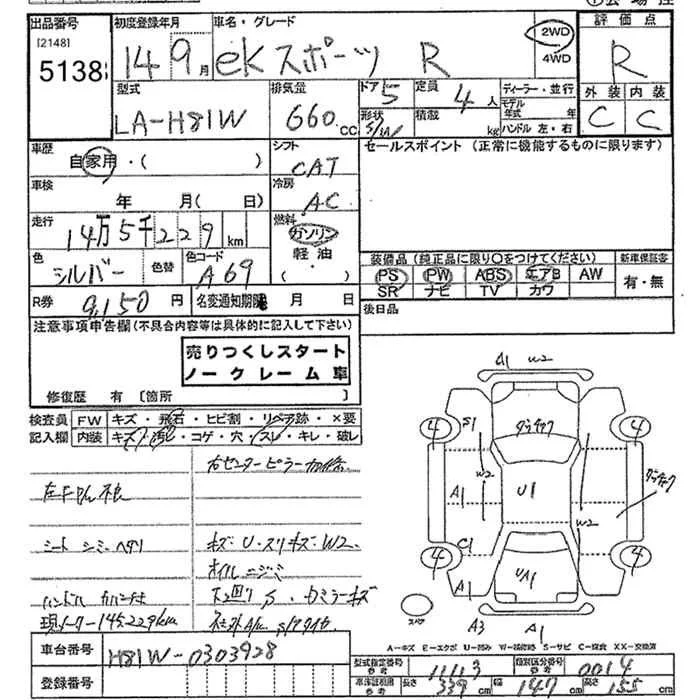 出品番号
[2148]
5138
初度登録年月
14 9月
車名・グレード
eKスポーツ R
2WD
4WD
評価点
R
外装 内装
C C
型式
LA-H81W
排気量
660 cc
ドア 5
形状 S/W
定員 4 人
積載 kg
ディーラー・並行
モデル年式 年
ハンドル 左・右
車歴
自家用・( )
シフト
CAT
セールスポイント (正常に機能するものに限ります)
車検
年 月( 日)
冷房
AC
走行
14万5千229 km
燃料
ガソリン
軽油
・( )
色
シルバー
色替
色コード
A69
装備品 (純正品に限り○をつけてください)
新車保証書
PS PW ABS エアB AW
SR ナビ TV カワ
有・無
R券
9,150 円
名変通知期限 月 日
後日品
注意事項申告欄 (不具合内容等は具体的に記入して下さい)
売りつくしスタート
ノークレーム車
修復歴 有 〔箇所 〕
検査員
記入欄
FW キズ・飛石・ヒビ割・リペア跡・×要
内装 キズ・汚れ・コゲ・穴・スレ・キレ・破レ
右センターピラー
シート シミ・ヘタリ
キズ・U・スリキズ・W2
オイルニジミ
下回りS・
ハンドル
現メーター145229km
A1 W2
S1
4 4
W2
A1
U1
W2
C1
4 4
A1
UA1
A3 A1
スペア
A=キズ E=エクボ U=凹み W=補修跡 S=サビ C=腐食 XX=交換済
車台番号
H81W-0303928
登録番号
型式指定番号 参考 11113
類別区分番号 参考 0014
車体証明範囲 参考 長さ 339 cm 幅 147 cm 高さ 155 cm